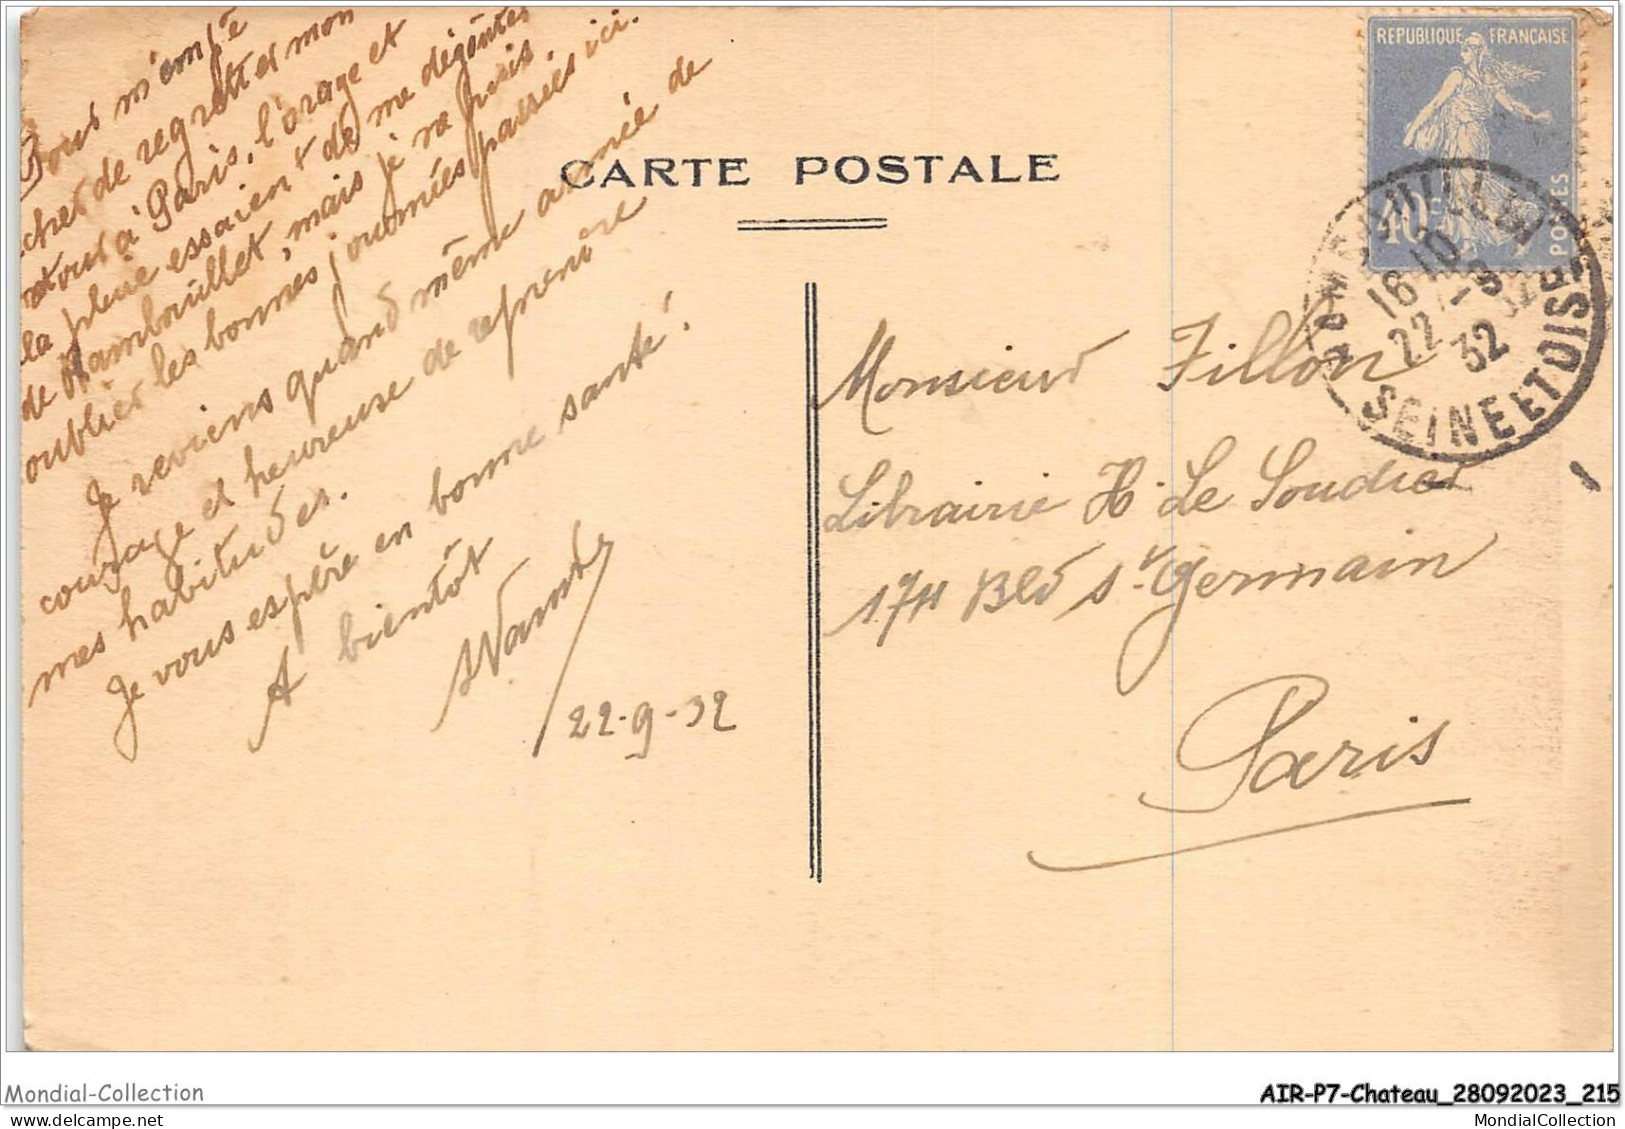 Pour m'empê
cher de regretter mon
retour à Paris, l'orage et
la pluie essaient de me dégoûter
de Rambouillet, mais je ne puis
oublier les bonnes journées passées ici.
Je reviens quand même armée de
courage et heureuse de reprendre
mes habitudes.
Je vous espère en bonne santé.
A bientôt
22-9-32
CARTE POSTALE
REPUBLIQUE FRANÇAISE
40c
POSTES
16 10
22 - 9
32
SEINE ET OISE
Monsieur Fillon
Librairie H. Le Soudier
174 Bld St Germain
Paris
Mondial-Collection
AIR-P7-Chateau_28092023_215
MondialCollection